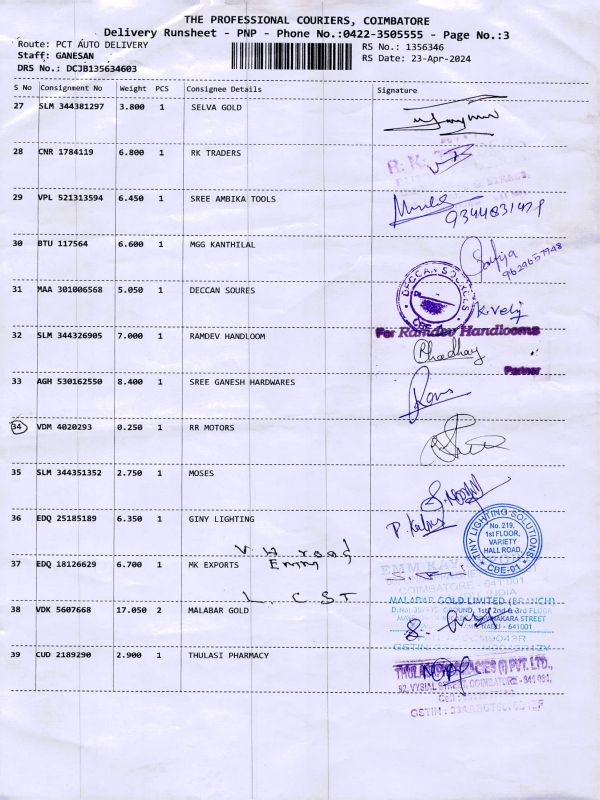 THE PROFESSIONAL COURIERS, COIMBATORE
Delivery Runsheet - PNP - Phone No.:0422-3505555 - Page No.:3
Route: PCT AUTO DELIVERY RS No.: 1356346
Staff: GANESAN RS Date: 23-Apr-2024
DRS No.: DCJB135634603
S No Consignment No Weight PCS Consignee Details Signature
27 SLM 344381297 3.800 1 SELVA GOLD
28 CNR 1784119 6.800 1 RK TRADERS
R. K.
29 VPL 521313594 6.450 1 SREE AMBIKA TOOLS
30 BTU 117564 6.600 1 MGG KANTHILAL
9629657948
31 MAA 301006568 5.050 1 DECCAN SOURES
DECCAN SOURCES
K. Velj
32 SLM 344326905 7.000 1 RAMDEV HANDLOOM
For Ramdev Handlooms
Partner
33 AGH 530162550 8.400 1 SREE GANESH HARDWARES
34 VDM 4020293 0.250 1 RR MOTORS
35 SLM 344351352 2.750 1 MOSES
36 EDQ 25185189 6.350 1 GINY LIGHTING
LIGHTING SOLUTIONS
No. 219,
1st FLOOR,
VARIETY
HALL ROAD,
CBE-01
V H road
37 EDQ 18126629 6.700 1 MK EXPORTS
EMM KAY
COIMBATORE - 641 001
INDIA
L. C S T
38 VDK 5607668 17.050 2 MALABAR GOLD
MALABAR GOLD LIMITED (BRANCH)
GROUND, 1st, 2nd & 3rd FLOOR
STREET
TAMIL NADU - 641001
GSTIN
39 CUD 2189290 2.900 1 THULASI PHARMACY
THULASI PHARMACIES (I) PVT. LTD.,
92, VYSIAL STREET, COIMBATORE - 641 001,
GSTIN :